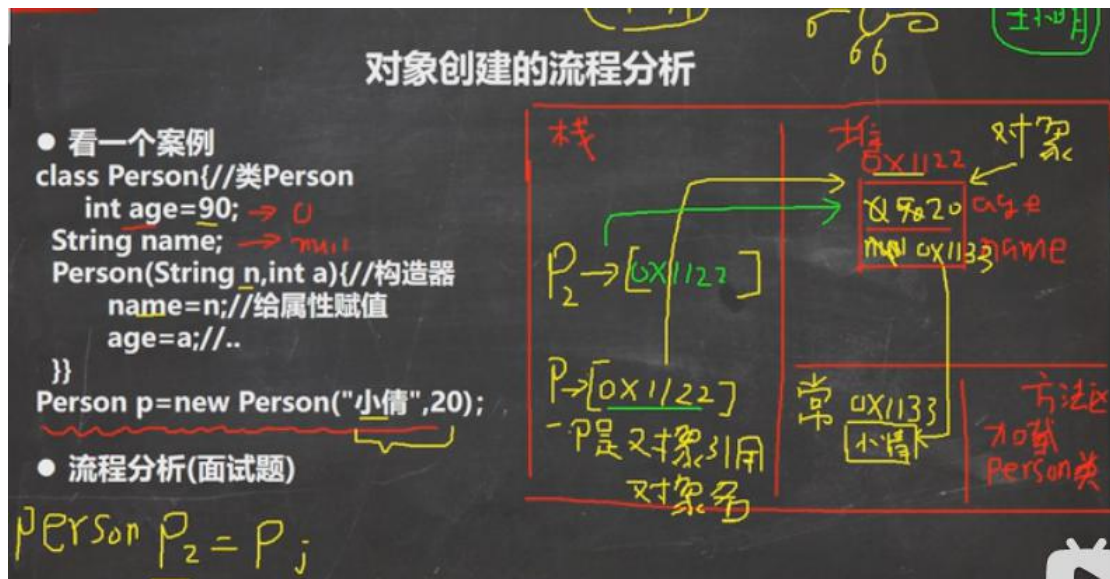 对象创建的流程分析
● 看一个案例
class Person{//类Person
int age=90; → 0
String name; → null
Person(String n,int a){//构造器
name=n;//给属性赋值
age=a;//..
}}
Person p=new Person("小倩",20);
● 流程分析(面试题)
person P2 = P;
66
栈
P2→[0X1122]
P→[0X1122]
P是对象引用
对象名
堆
0X1122
对象
20 age
null 0X1133 name
常
0X1133
小倩
方法区
加载
Person类